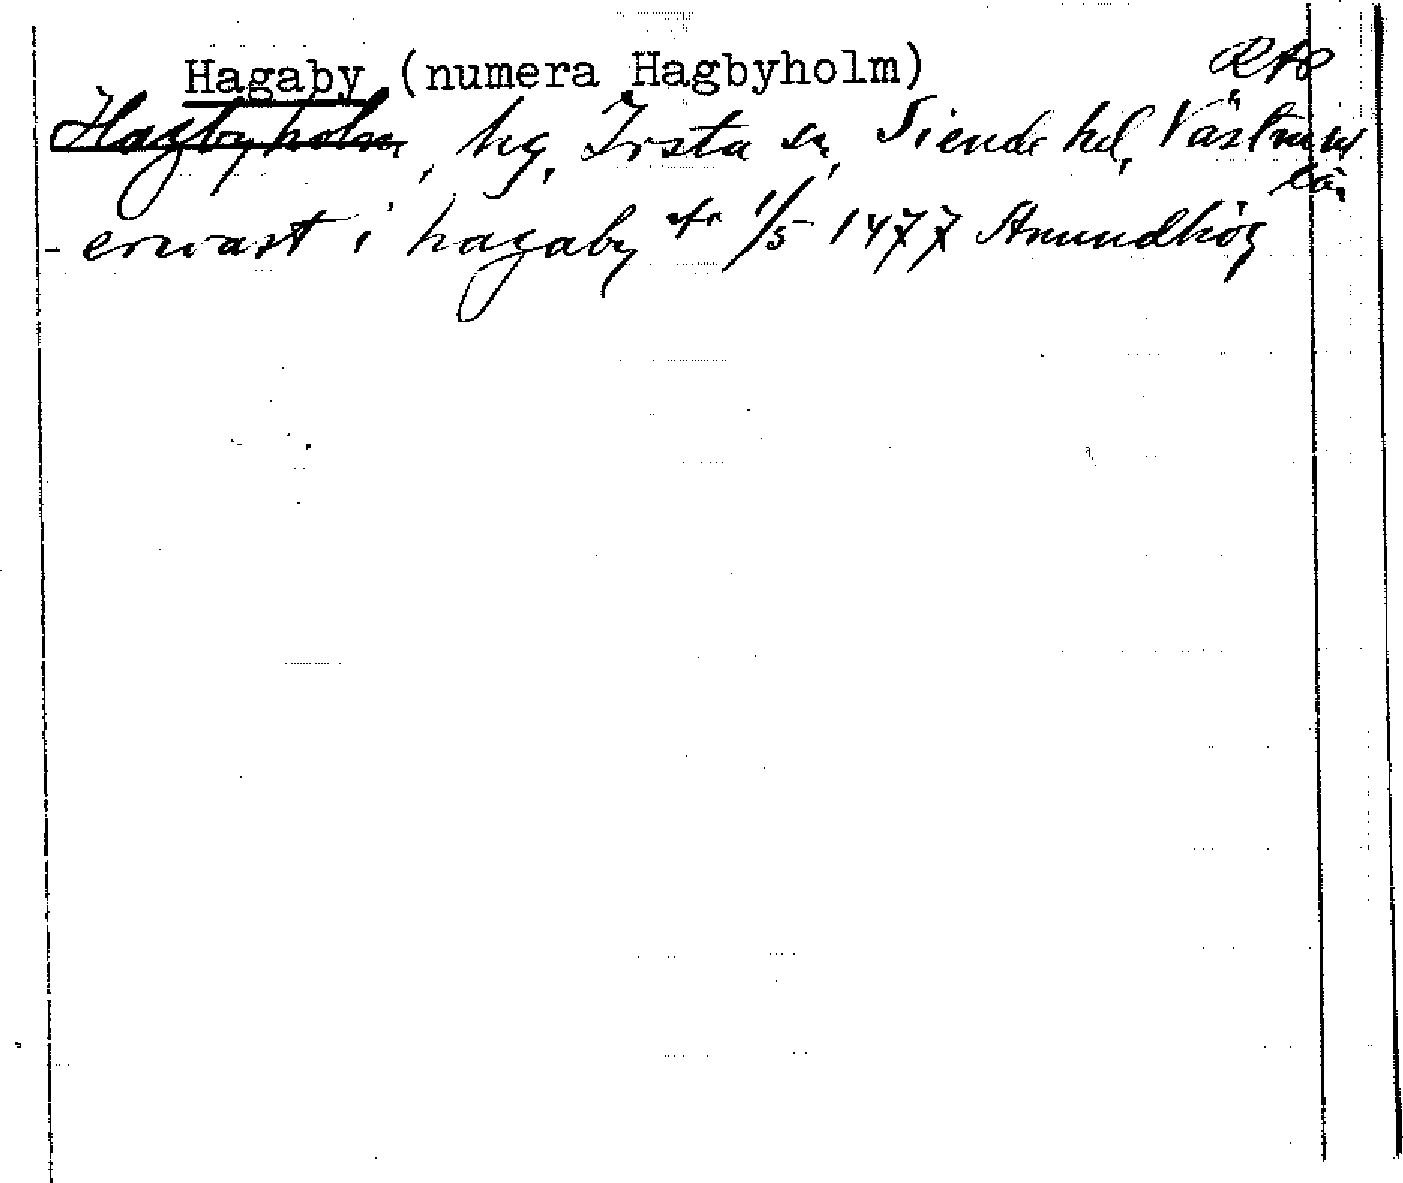 Hagaby (numera Hagbyholm) RAp
Hagbyholm, hg, Irsta sn, Siende hd, Västml
län
- erwast i hagaby or 1/5 1477 Anundhög